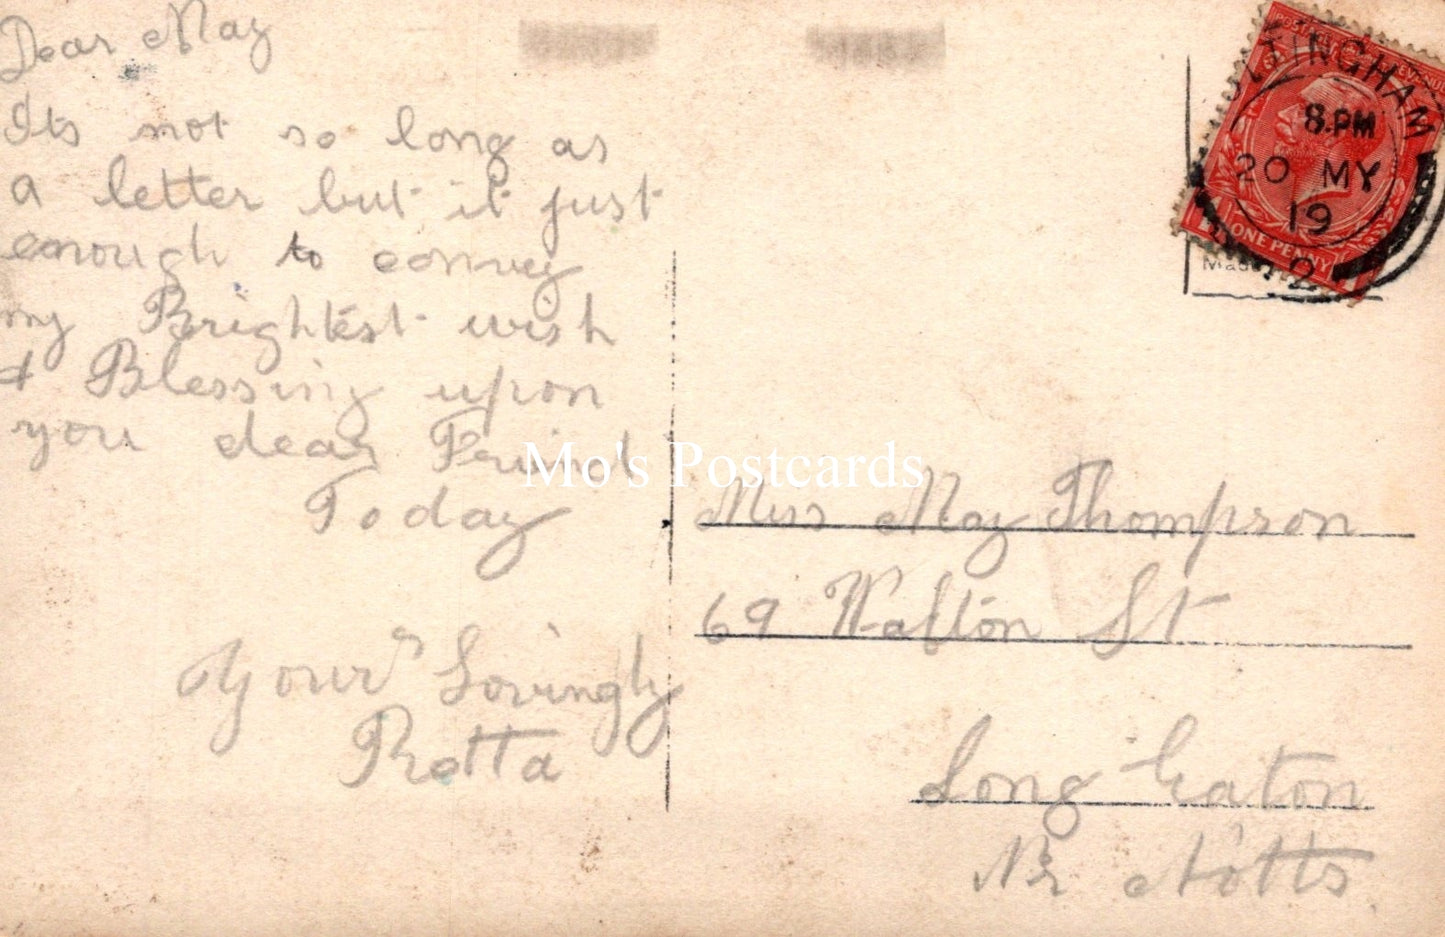 Dear May
Its not so long as
a letter but it just
enough to convey
my Brightest wish
& Blessing upon
you dear Friend
Today
Your Lovingly
Retta
Mo's Postcards
TINGHAM
8.PM
20 MY
19
2
ONE PENNY
Made
Miss May Thompson
69 Walton St
Long Eaton
Nr Notts